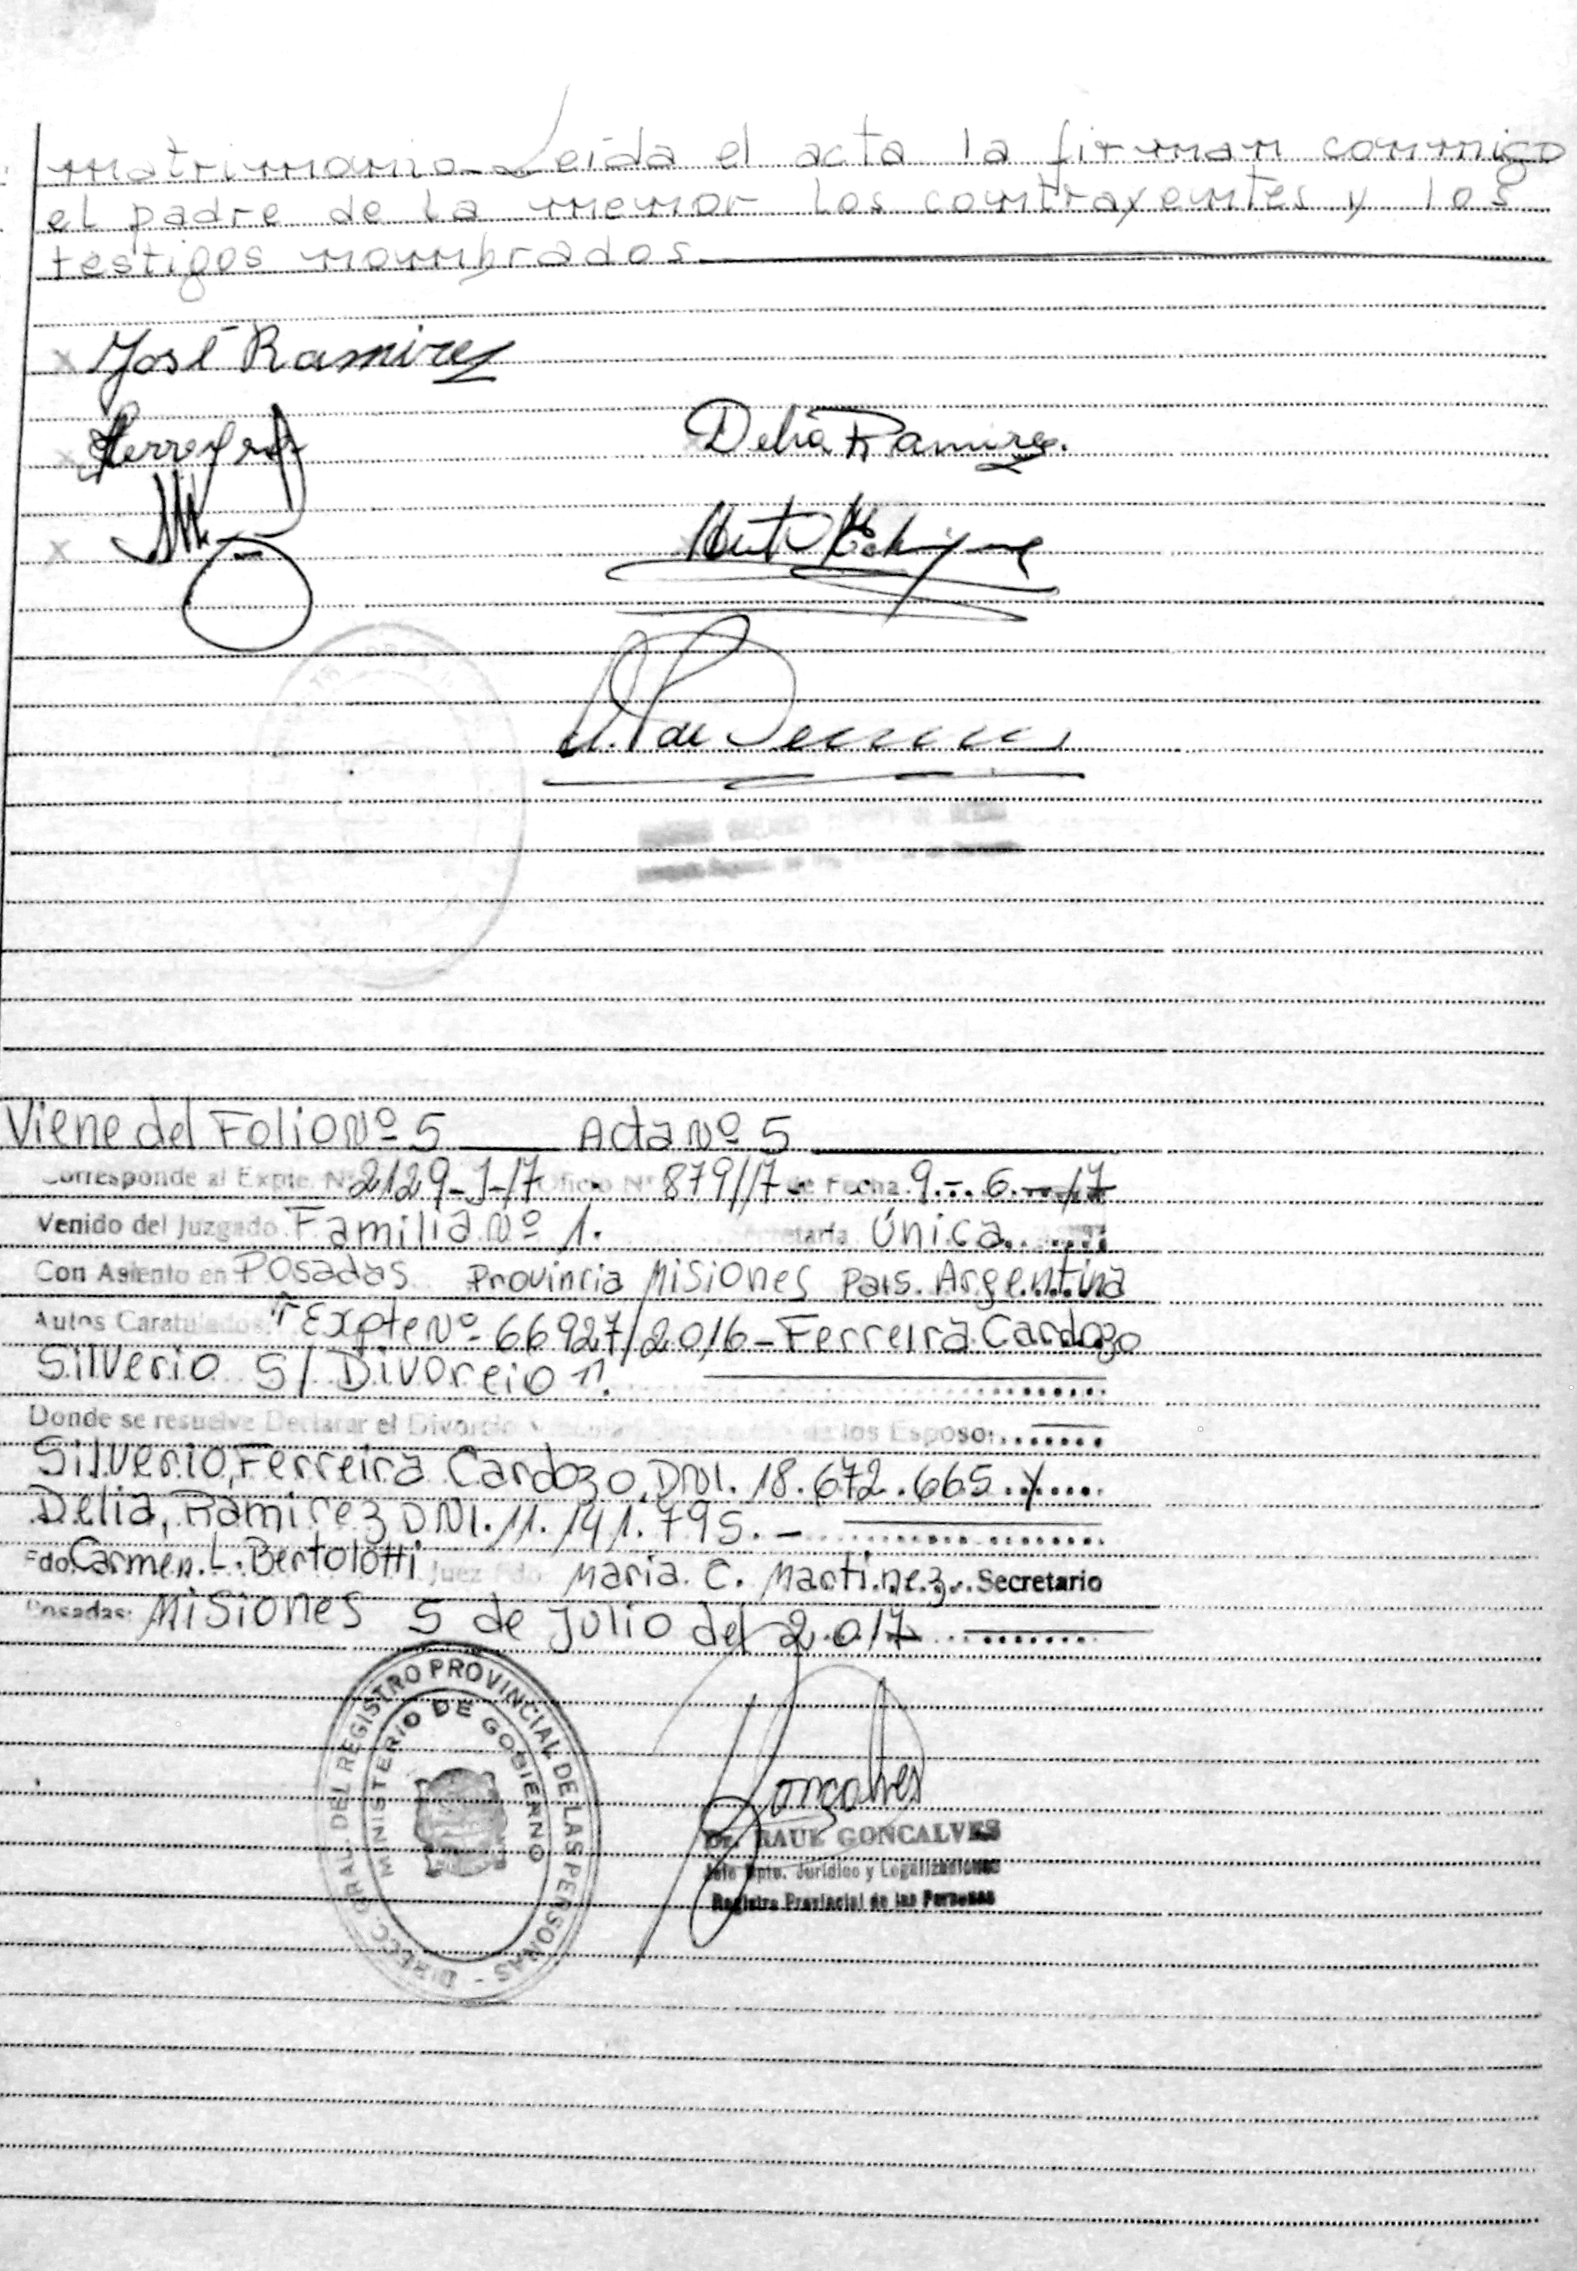 matrimonio. Leída el acta la firman conmigo
el padre de la menor los contrayentes y los
testigos nombrados.
x José Ramirez
x
x Delia Ramirez.
x
Viene del Folio Nº 5 Acta Nº 5
Corresponde al Expte. Nº 2129-J-17 Oficio Nº 879/17 de Fecha 9.-.6.-.17
Venido del Juzgado Familia Nº 1. Secretaría Única
Con Asiento en Posadas Provincia Misiones Pais. Argentina
Autos Caratulados: "Expte Nº 66927/2016-Ferreira Cardozo
Silverio S/ Divorcio".
Donde se resuelve Declarar el Divorcio de los Esposo:
Silverio, Ferreira Cardozo, DNI. 18.672.665 y
Delia, Ramirez DNI. 11.141.795.-
Fdo. Carmen. L. Bertolotti Juez Fdo. Maria. C. Martinez. Secretario
Posadas: Misiones 5 de Julio del 2.017
DIRECC. GRAL. DEL REGISTRO PROVINCIAL DE LAS PERSONAS -
MINISTERIO DE GOBIERNO
Gonçalves
Dr. RAUL GONCALVES
Jefe Dpto. Jurídico y Legalizaciones
Registro Provincial de las Personas